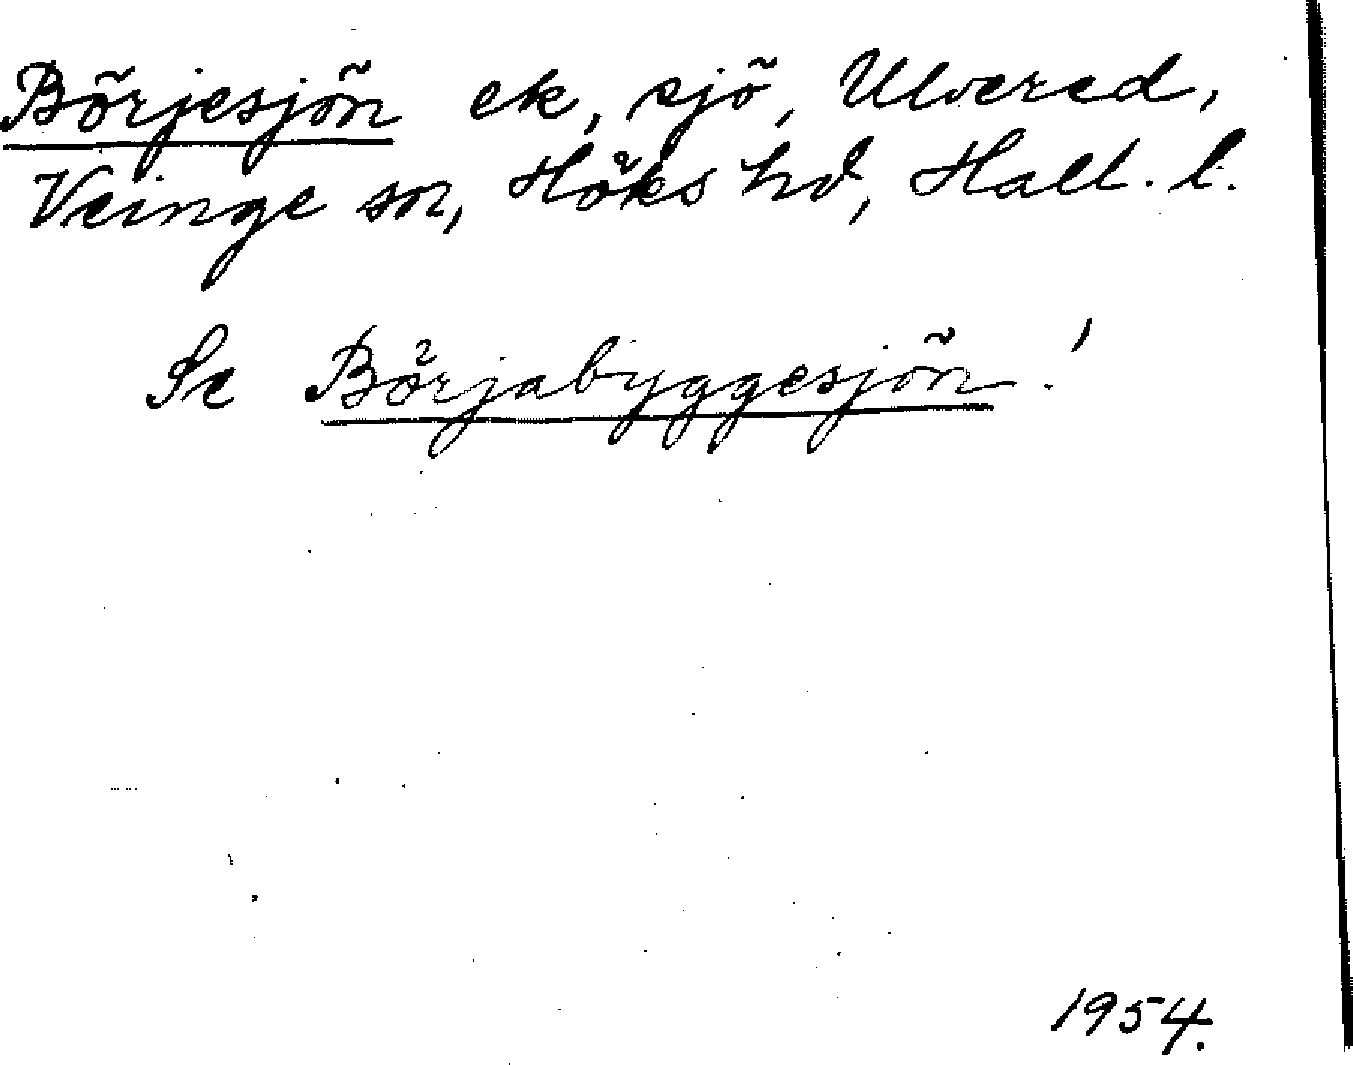 Börjesjön ek, sjö, Ulvered,
Veinge sn, Höks hd, Hall. l.
Se Börjabyggesjön!
1954.